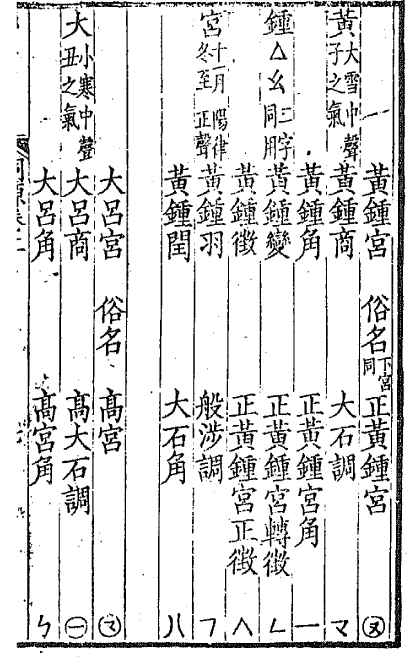 黃 大雪中聲 子之氣
鍾 △ 幺 二字同用
宮 十一月 冬至 陽律 正聲
黃鍾宮 俗名 下宮同 正黃鍾宮
黃鍾商 大石調 マ
黃鍾角 正黃鍾宮角 一
黃鍾變 正黃鍾宮轉徵 ㄴ
黃鍾徵 正黃鍾宮正徵 人
黃鍾羽 般涉調 フ
黃鍾閏 大石角
大 小寒中聲 丑之氣
大呂宮 俗名 高宮
大呂商 高大石調 ㊀
大呂角 高宮角 ㄣ